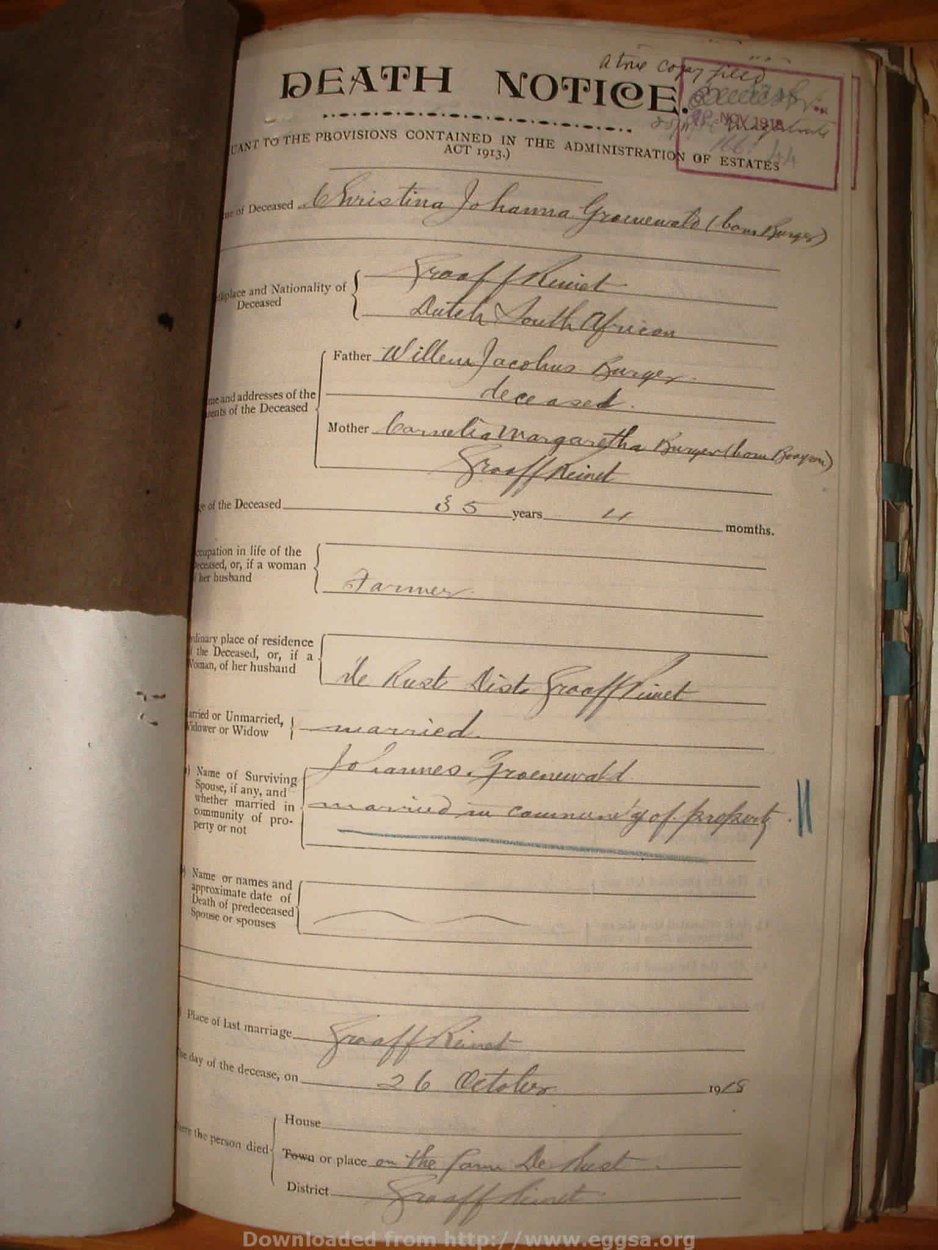 a true copy filed
DEATH NOTICE.
NOV 1918
UANT TO THE PROVISIONS CONTAINED IN THE ADMINISTRATION OF ESTATES
ACT 1913.)
me of Deceased Christina Johanna Groenewald (born Burger)
hplace and Nationality of Deceased
Graaff Reinet
Dutch South African
me and addresses of the
rents of the Deceased
Father Willem Jacobus Burger
deceased.
Mother Cornelia Margaretha Burger (born Booysen)
Graaff Reinet
ge of the Deceased 35 years 11 momths.
ccupation in life of the
eceased, or, if a woman
her husband
Farmer
rdinary place of residence
f the Deceased, or, if a
Woman, of her husband
De Rust Dist Graaff Reinet
arried or Unmarried,
Widower or Widow
married.
) Name of Surviving
Spouse, if any, and
whether married in
community of pro-
perty or not
Johannes Groenewald
married in community of property.
) Name or names and
approximate date of
Death of predeceased
Spouse or spouses
) Place of last marriage Graaff Reinet
he day of the decease, on 26 October 1918
here the person died
House
Town or place on the farm De Rust.
District Graaff Reinet
Downloaded from http://www.eggsa.org